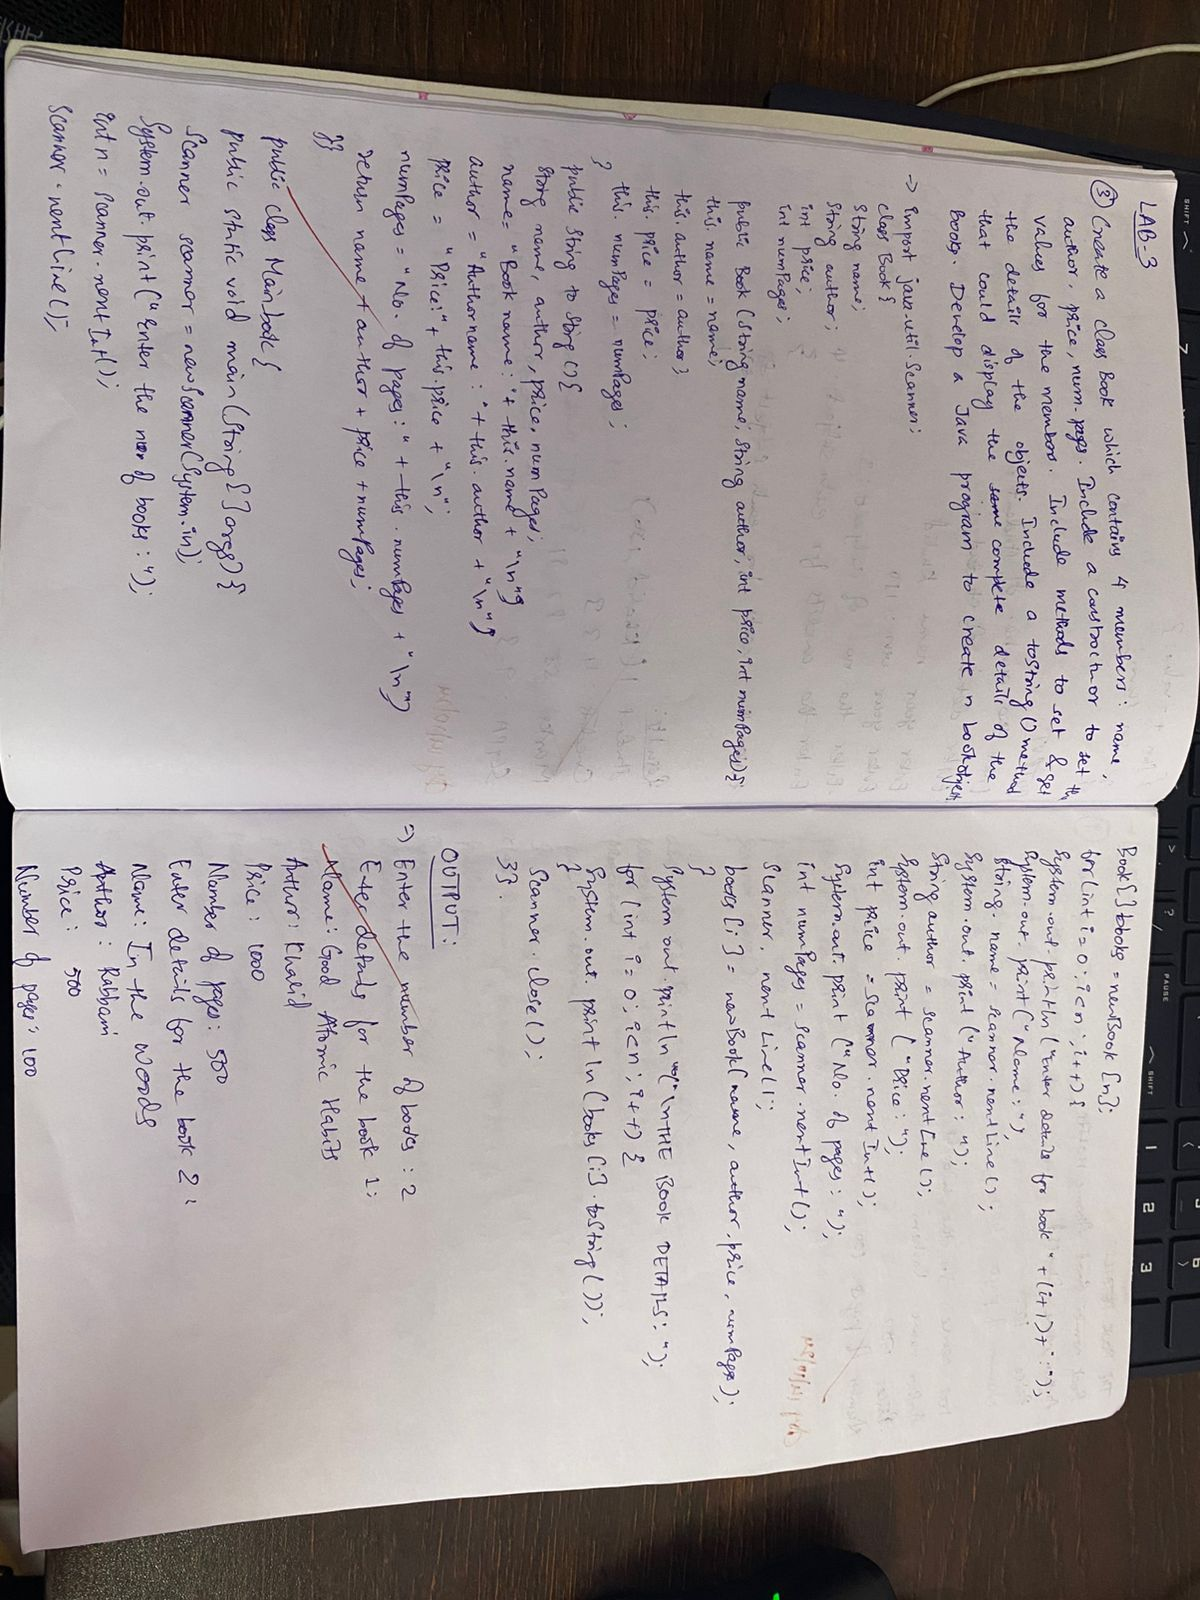 LAB-3
③ Create a class Book which contains 4 members: name,
author, price, num-pages. Include a constructor to set the
values for the members. Include methods to set & get
the details of the objects. Include a toString() method
that could display the complete details of the
Books. Develop a Java program to create n book objects
-> import java.util.Scanner;
class Book {
String name;
String author;
int price;
int numPages;
public Book (String name, String author, int price, int numPages) {
this.name = name;
this.author = author;
this.price = price;
this.numPages = numPages;
}
public String to String () {
String name, author, price, numPages;
name = "Book name: " + this.name + "\n";
author = "Author name: " + this.author + "\n";
price = "Price: " + this.price + "\n";
numPages = "No. of pages: " + this.numPages + "\n";
return name + author + price + numPages;
}}
public class Mainbook {
public static void main (String [] args) {
Scanner scanner = new Scanner (System.in);
System.out.print ("Enter the no of books: ");
int n = scanner.nextInt();
scanner.nextLine();
Book [] books = new Book [n];
for (int i = 0; i < n; i++) {
System.out.println ("Enter details for book " + (i+1) + ":");
System.out.print ("Name: ");
String name = scanner.nextLine();
System.out.print ("Author: ");
String author = scanner.nextLine();
System.out.print ("Price: ");
int price = scanner.nextInt();
System.out.print ("No. of pages: ");
int numPages = scanner.nextInt();
scanner.nextLine();
books [i] = new Book (name, author, price, numPages);
}
System.out.println ("\nTHE BOOK DETAILS: ");
for (int i = 0; i < n; i++) {
System.out.println (books [i].toString());
}
Scanner.close();
}}.
OUTPUT:
=> Enter the number of books: 2
Enter details for the book 1:
Name: Good Atomic Habits
Author: Khalid
Price: 1000
Number of pages: 500
Enter details for the book 2:
Name: In the Woods
Author: Rabbani
Price: 500
Number of pages: 100
SHIFT
7
PAUSE
SHIFT
1
2
3